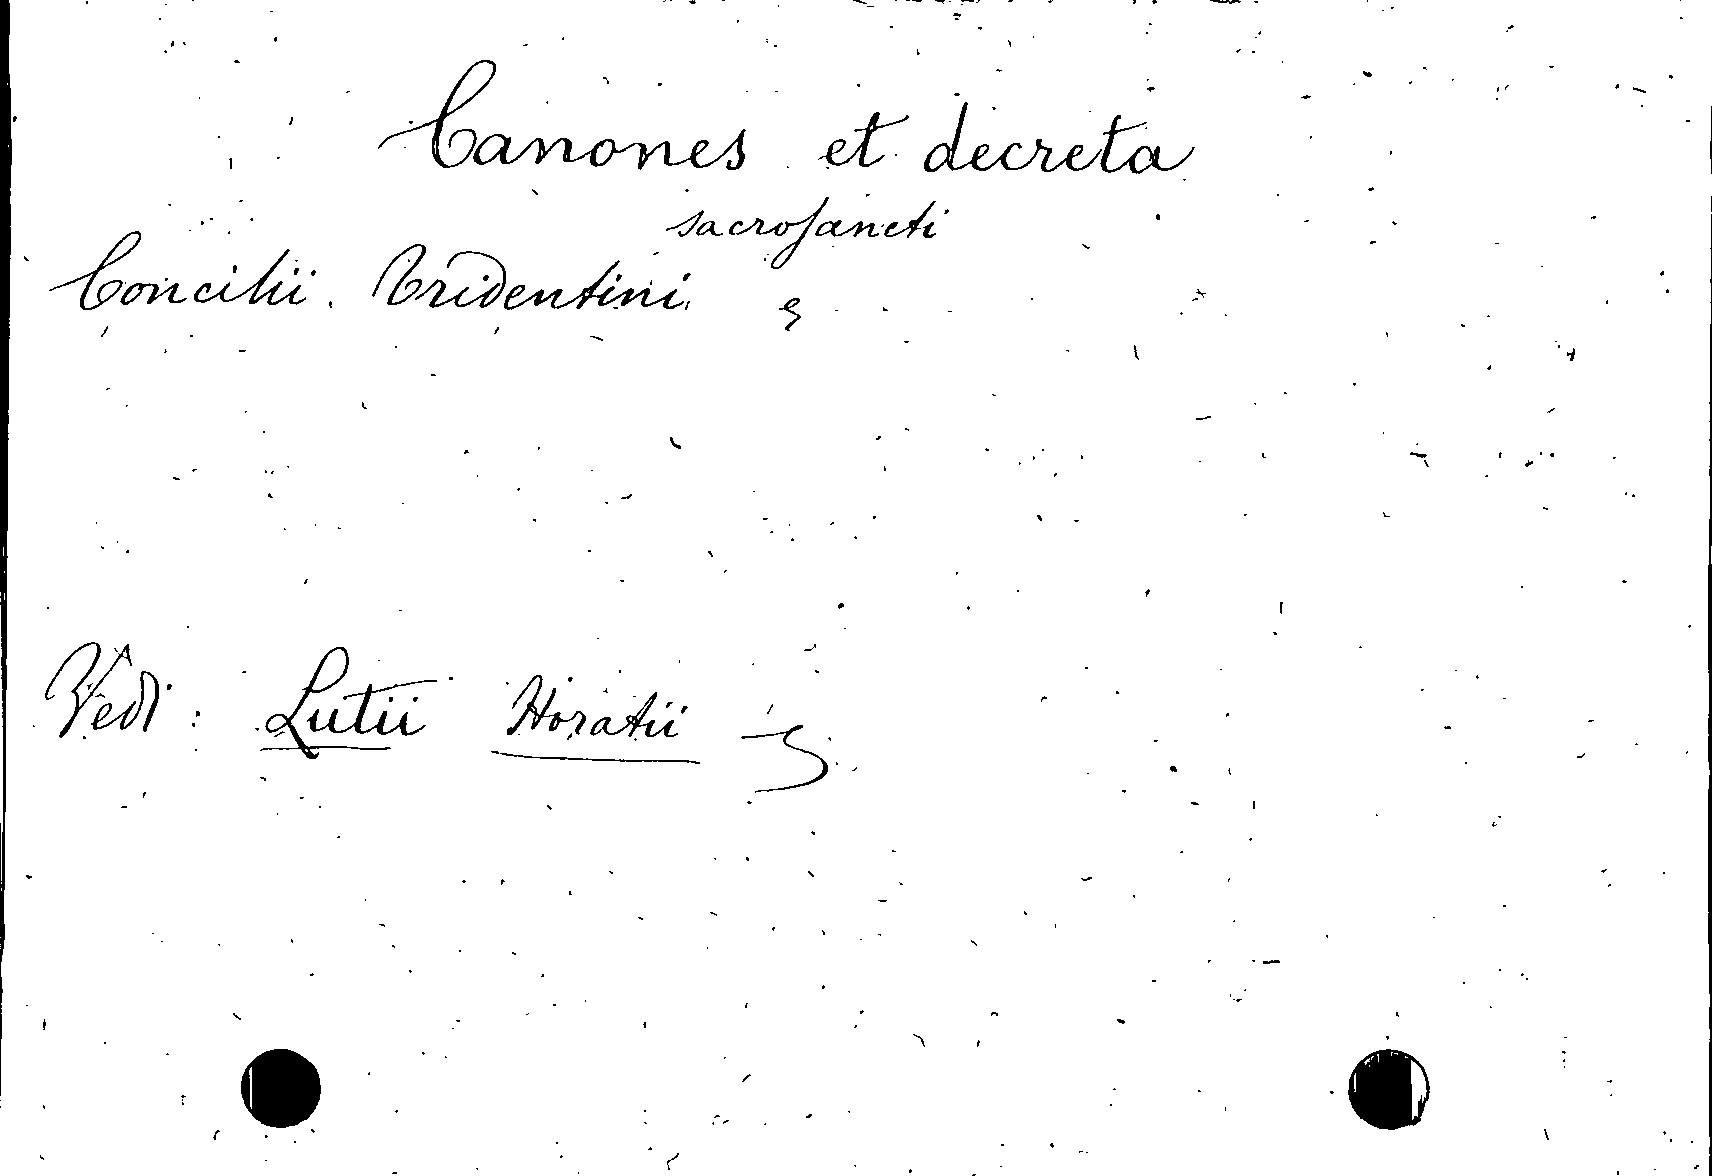 Canones et decreta
sacrosancti
Concilii Tridentini
Vedi: Lutii Horatii